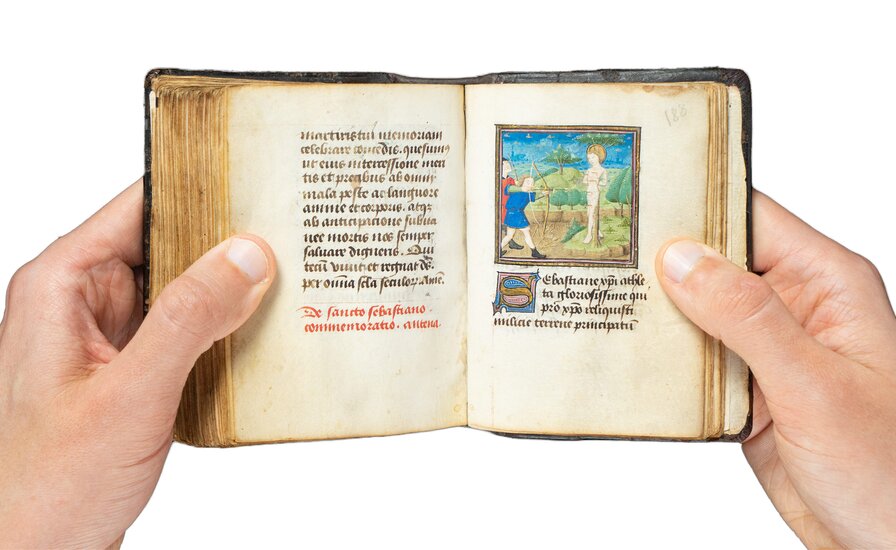 martiris tui memoriam
celebrare concedis. quesum⁹
ut eius intercessione meri
tis et precibus ab omni
mala peste ac languore
anime et corporis. atq̃
ab anticipatione subita
nee mortis nos semper
saluare digneris. Qui
tecũ viuit et regnat ds̃.
per oĩa sc̃la seculor. amẽ.
De sancto sebastiano
commemoratio. antena.
188
Sebastiane xp̃i athle
ta gloriosissime qui
pro xp̃o reliquisti
milicie terrene principatũ